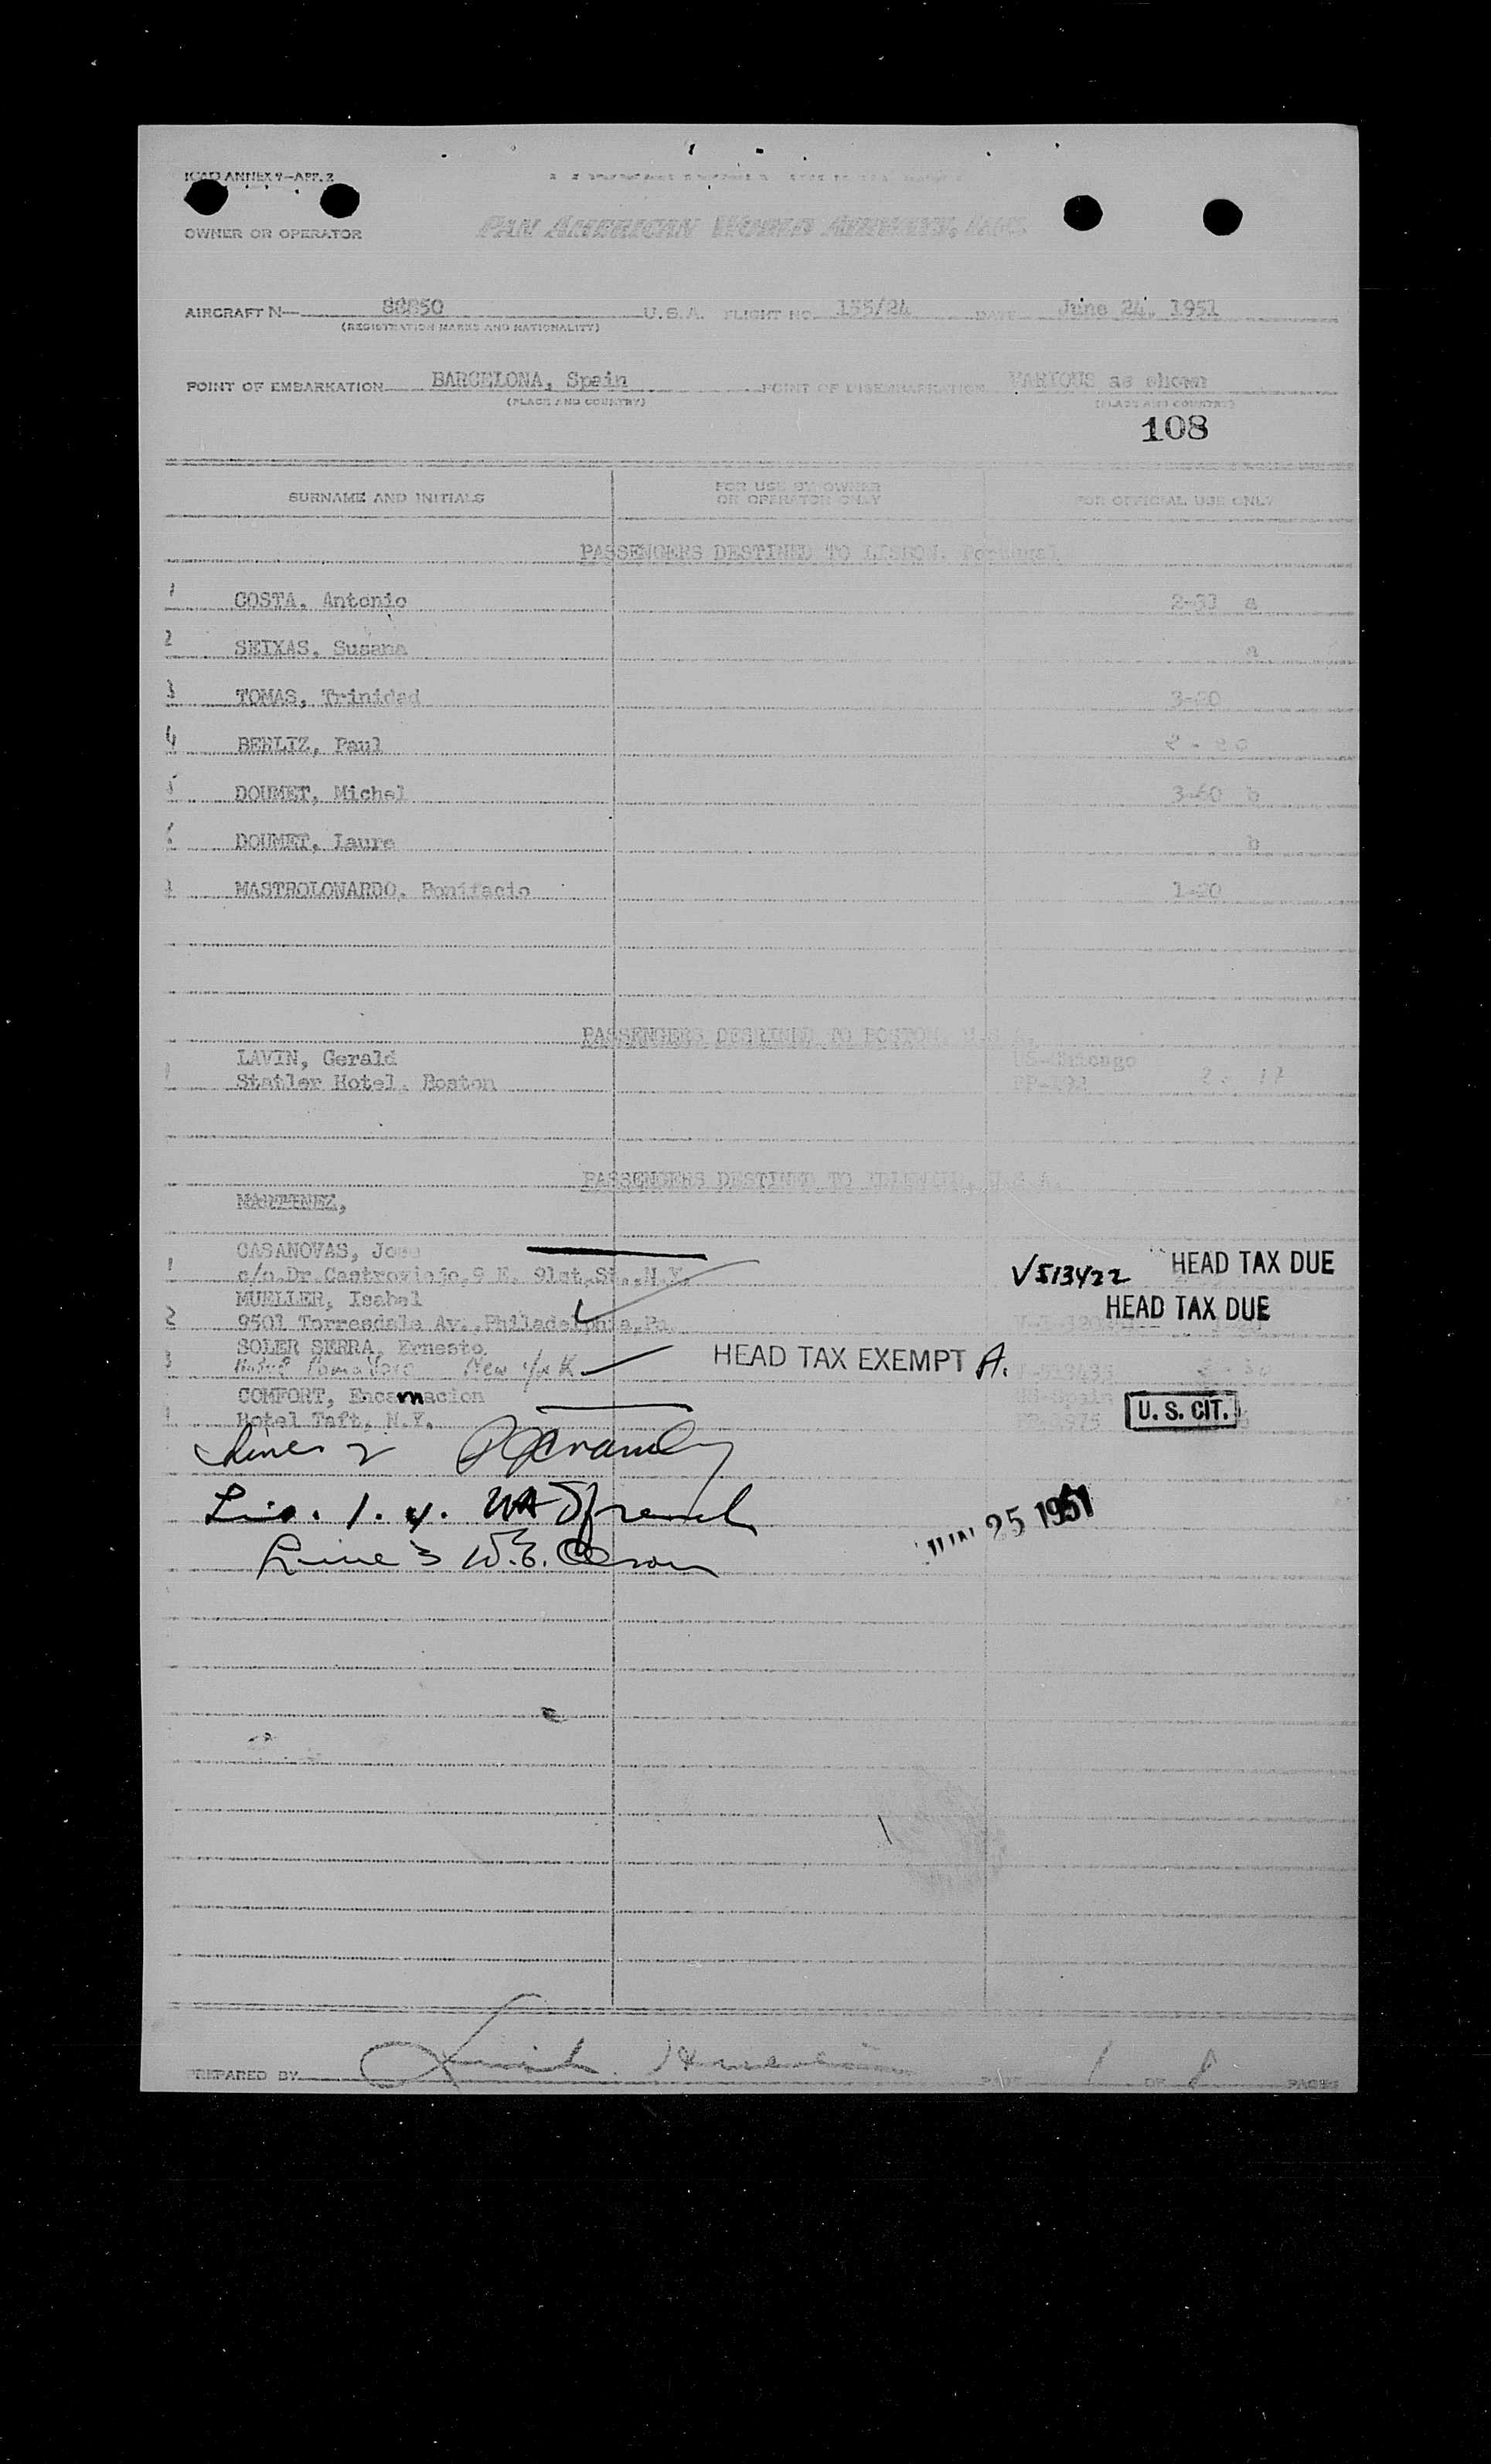 ICAO ANNEX 9—APP. 2
OWNER OR OPERATOR PAN AMERICAN WORLD AIRWAYS, INC.
AIRCRAFT N— 88850 U.S.A. FLIGHT NO. 155/24 DATE June 24, 1951
(REGISTRATION MARKS AND NATIONALITY)
POINT OF EMBARKATION BARCELONA, Spain POINT OF DISEMBARKATION VARIOUS as shown
(PLACE AND COUNTRY) (PLACE AND COUNTRY)
108
SURNAME AND INITIALS FOR USE BY OWNER OR OPERATOR ONLY FOR OFFICIAL USE ONLY
PASSENGERS DESTINED TO LISBON, Portugal
1 COSTA, Antonio a
2 SEIXAS, Susana a
3 TOMAS, Trinidad 3-20
4 BERLIZ, Paul
5 DOUMET, Michel 3-60 b
6 DOUMET, Laure b
MASTROLONARDO, Bonifacio 1-20
PASSENGERS DESTINED TO BOSTON, U.S.A.
1 LAVIN, Gerald US-Chicago
Statler Hotel, Boston
PASSENGERS DESTINED TO IDLEWILD, U.S.A.
MARTINEZ,
CASANOVAS, HEAD TAX DUE
1 c/o.Dr.Castroviejo,9 E. 91st.St.,N.Y. V513422
MUELLER, Isabel HEAD TAX DUE
2 9501 Torresdale Av.,Philadelphia,Pa.
SOLER SERRA, Ernesto HEAD TAX EXEMPT A.
3 Hotel New York
COMFORT, Encarnacion US-Spain U. S. CIT.
1 Hotel Taft, N.Y.
Lines 2
Lin. 1. 4.
JUN 25 1951
Line 3 W.E.
PREPARED BY PAGE 1 OF PAGES